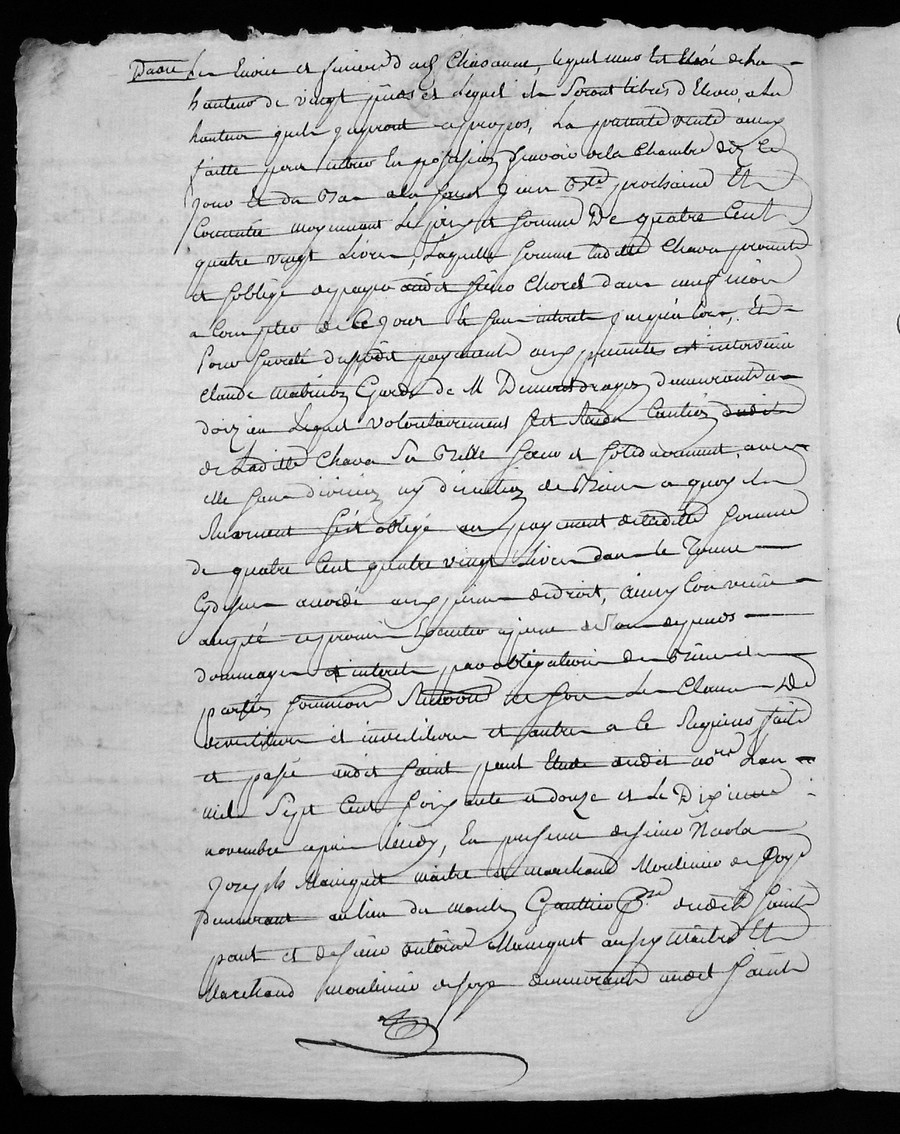 et sieur d Chavanne, lequel mur est de la
hauteur de vingt pieds et lequel ils seront libres d'Elever, a la
hauteur quils jugeront apropos, La presente vente
faitte pour entrer En possession savoir de la Chambre dez Ce
jour Et du Bas a la saint jean Bte prochaine Et
moyennant Le prix et somme De quatre Cent
quatre vingt Livres, Laquelle somme laditte Chava promet
et soblige de payer audit sieur Chorel dans neuf mois
a Compter de Ce Jour sans interets jusqu'alors, Et
Pour sureté dudit payement aux presentes est intervenu
Claude Garde de M demeurant a
Lequel volontairement sest Rendu Caution
de Laditte Chava Sa Belle Soeur et solidairement, avec
elle sans division ny discution de Biens a quoy il
Renoncent sest obligé au payement de laditte somme
de quatre Cent quatre vingt Livres dans le Terme
Cydessus accordé aux peines de droit, ainsy Convenu
accepté et promis a peine de tous depens
dommages et interets par obligation de Biens de
parties soumissions Renonce et sous Les Clauses De
devestitures et investitures et autres a Ce Requises fait
et passé audit Saint paul Etude dudit nore L'an
mil Sept Cent soixante et douze et Le Dixieme
novembre apres midy, En presence de sieur Nicolas
Joseph Mainguet maitre et marchand Moulinier de soye
demeurant au lieu du Gauthier psse dudit Saint
paul et de sieur antoine Mainguet aussy Maitre Et
Marchand moulinier de soye demeurant audit Saint